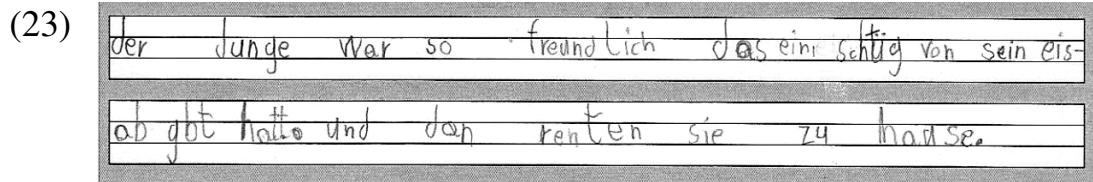 (23)
der Junge War so freundlich das ein schtüg von sein eis-
ab gbt hatte und dan renten sie zu hause.